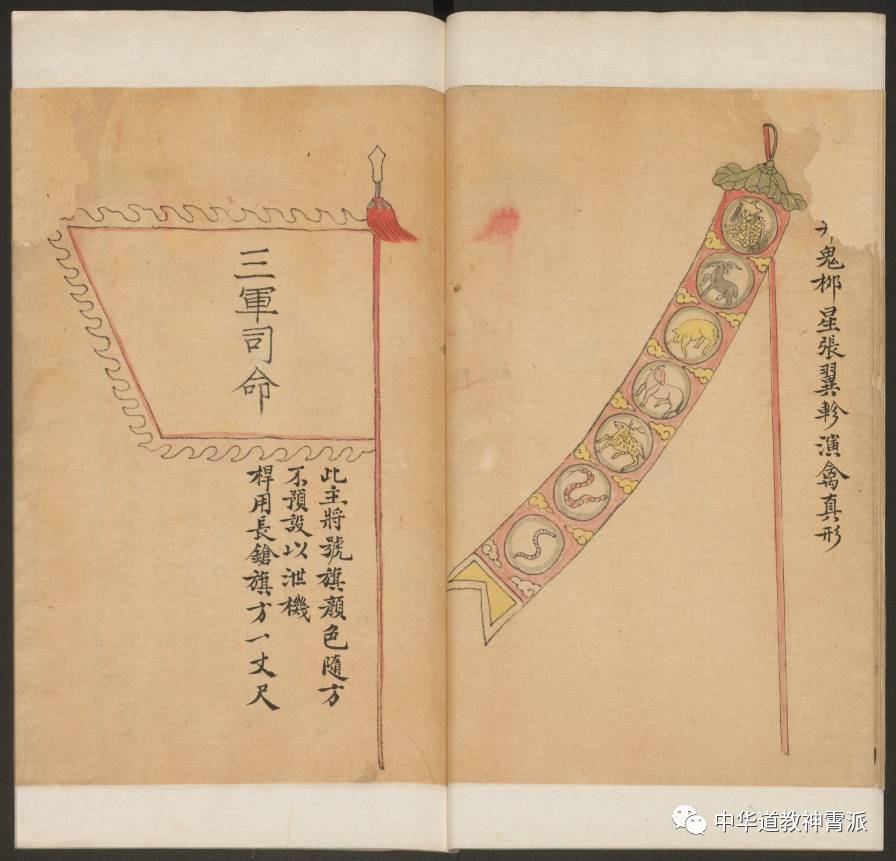 鬼柳星張翼軫演禽真形
三軍司命
此主將號旗顏色隨方
不預設以泄機
桿用長鎗旗方一丈尺
中华道教神霄派